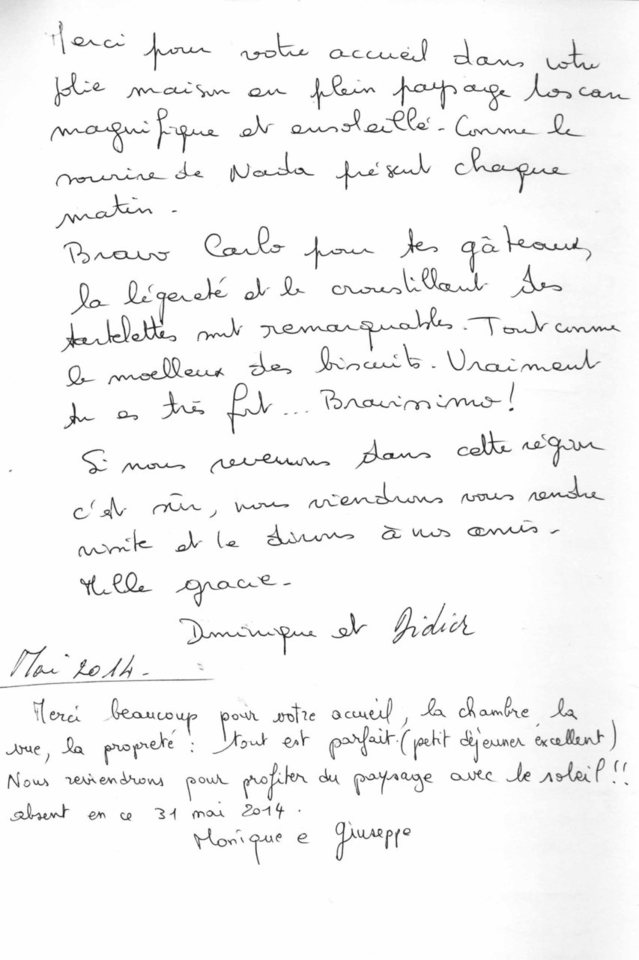 Merci pour votre accueil dans votre
jolie maison en plein paysage toscan
magnifique et ensoleillé - Comme le
sourire de Nada présent chaque
matin -
Bravo Carlo pour tes gâteaux,
la légereté et le croustillant des
tartelettes sont remarquables. Tout comme
le moelleux des biscuits. Vraiment
tu es très fort... Bravissimo!
Si nous revenons dans cette région
c'est sûr, nous viendrons vous rendre
visite et le dirons à nos amis -
Mille gracie -
Dominique et Didier
Mai 2014 -
Merci beaucoup pour votre accueil, la chambre, la
vue, la propreté : tout est parfait. (petit déjeuner excellent)
Nous reviendrons pour profiter du paysage avec le soleil!!
absent en ce 31 mai 2014.
Monique e Giuseppe